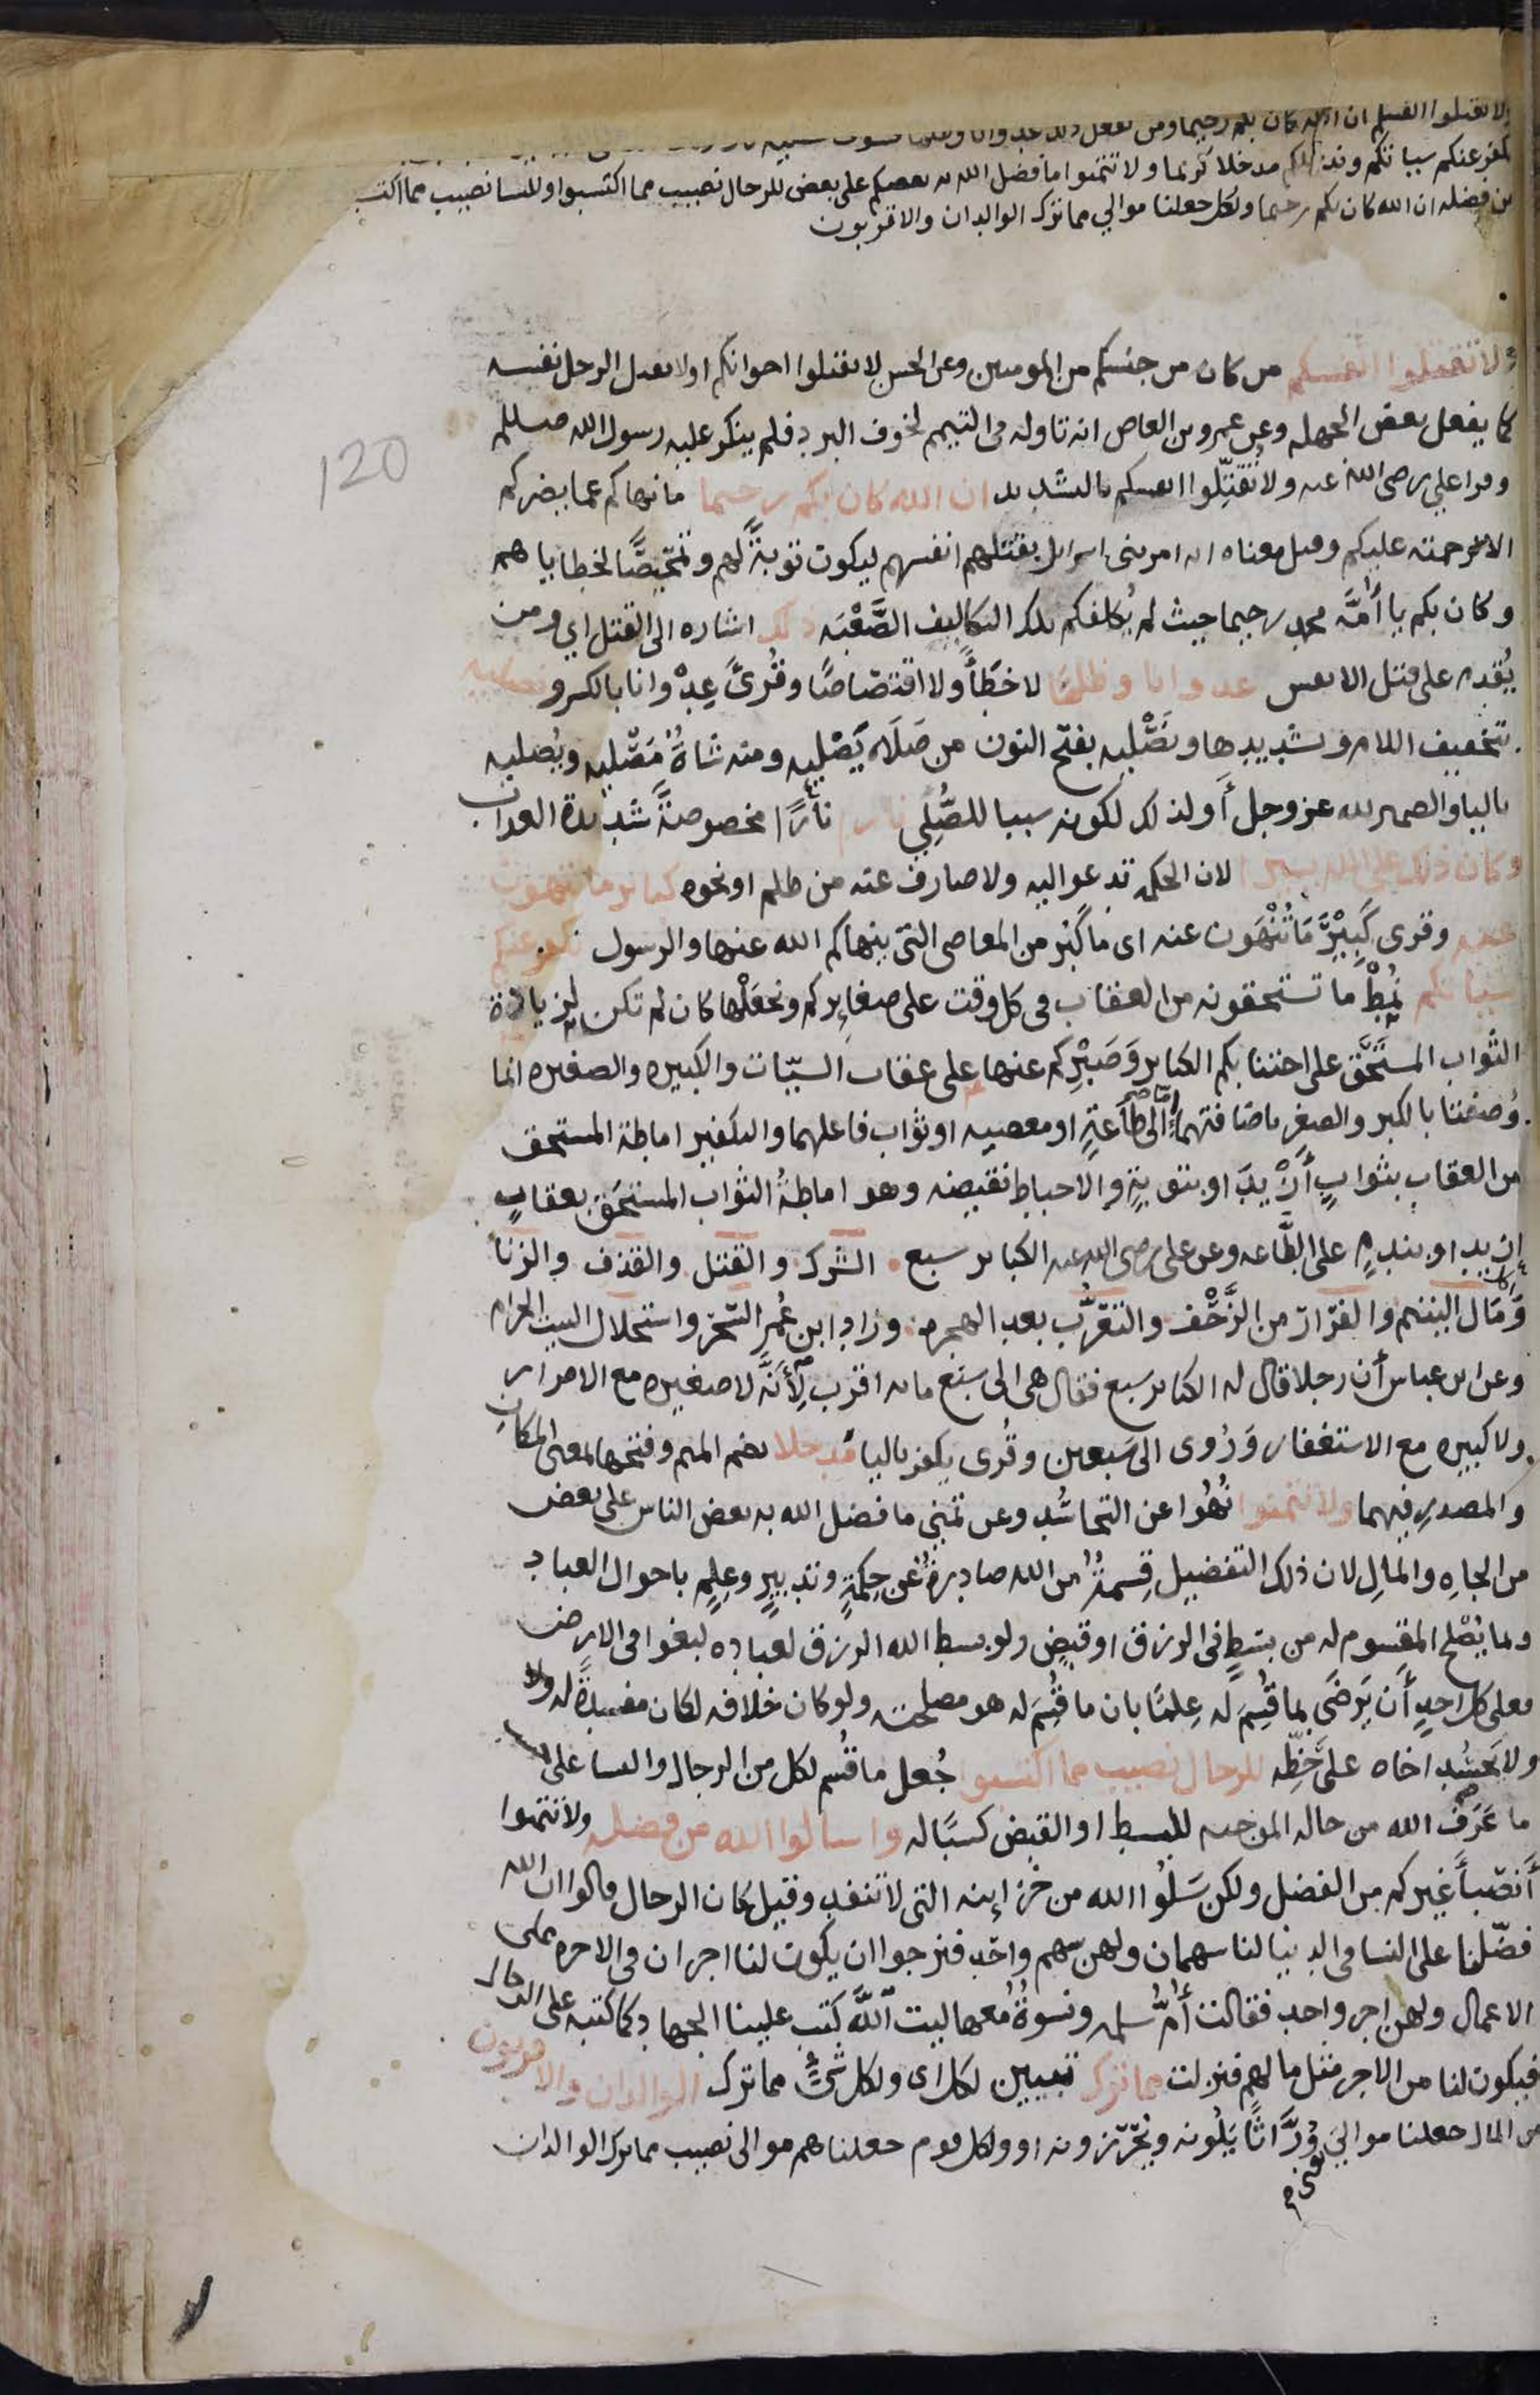 ولا تقتلوا انفسكم ان الله كان بكم رحيما ومن يفعل ذلك عدوانا وظلما فسوف نصليه نارا
نكفر عنكم سياتكم وندخلكم مدخلا كريما ولا تتمنوا ما فضل الله به بعضكم على بعض للرجال نصيب مما اكتسبوا وللنسا نصيب مما اكتسبن
من فضله ان الله كان بكم رحيما ولكل جعلنا موالي مما ترك الوالدان والاقربون
120
ولا تقتلوا انفسكم من كان من جنسكم من المومنين وعن الحسن لا تقتلوا اخوانكم او لا يقتل الرجل نفسه
كما يفعل بعض الجهله وعن عمرو بن العاص انه تاوله في التيمم لخوف البرد فلم ينكر عليه رسول الله صلعم
وقرا علي رضي الله عنه ولا تُقَتِّلوا انفسكم بالتشديد ان الله كان بكم رحيما ما نهاكم عما يضركم
الا لرحمته عليكم وقيل معناه انه امر بني اسرايل بقتلهم انفسهم ليكون توبةً لهم وتمحيصًا لخطاياهم
وكان بكم يا أُمَّة محمد رحيما حيث لم يُكلفكم تلك التكاليف الصَّعْبَه ذلك اشاره الى القتل اي ومن
يُقدم على قتل الانفس عدوانا وظلمًا لا خطأً ولا اقتصاصًا وقُرئَ عِدْوانا بالكسر ونصليه
بتخفيف اللام وتشديدها ونَصْليه بفتح النون من صَلَاه يَصْليه ومنه شاةٌ مَصْليه ويُصليه
باليا والضمير لله عز وجل أو لذلك لكونه سببا للصُّلِي نارا نارًا مخصوصةً شديدة العذاب
وكان ذلك على الله يسيرا لان الحكمه تدعوا اليه ولا صارف عنه من ظلم او نحوه كباير ما تنهون
عنه وقرى كَبِيْرَ مَا تُنْهَون عنه اى ما كَبُر من المعاصى التى ينهاكم الله عنها والرسول نكفر عنكم
سياتكم نُمِطْ ما تستحقونه من العقاب فى كل وقت على صغايركم ونجعَلْها كان لم تكن لزيادة
الثواب المستَحَق على اجتنابكم الكباير وَصَبْرِكم عنها على عقاب السيّات والكبيره والصغيره انما
وُصفتا بالكبر والصغر باضافتهما إمّا إلى طاعةٍ او معصيه او ثواب فاعلهما والتكفير اماطة المستحق
من العقاب بثوابٍ أزْيدَ او بتوبةٍ والاحباط نقيضه وهو اماطةُ الثواب المستحَق بعقابٍ
ازيد او بندمٍ على الطَّاعه وعن على رضى الله عنه الكباير سبع الشرك والقتل والقذف والزنا
وَمَال اليتيم والفرار من الزَّحْف والتعَرُّب بعد الهجره وزاد ابن عُمر السّحر واستحلال البيت الحرام
وعن ابن عباس أن رجلا قال له الكباير سبع فقال هى الى سبع مايه اقرب لِأنَّه لا صغيره مع الاصرار
ولا كبيره مع الاستغفار وَرُوى الى سَبعين وقُرى يكفر باليا مُدخلا بضم الميم وفتحها بمعنى المكان
والمصدرِ فيهما ولا تتمنوا نُهُوا عن التحاسُد وعن تمني ما فضل الله به بعض الناس على بعض
من الجاهِ والمالِ لان ذلك التفضيل قِسمةٌ من الله صادرةٌ عن حِكمةٍ وتدبيرٍ وعِلمٍ باحوال العباد
وبما يُصْلح المقسوم له من بسْطٍ فى الرزق او قبضٍ ولو بسط الله الرزق لعباده لبغوا فى الارض
فعلى كل احدٍ أن يَرضَى بما قُسِمَ له عِلمًا بان ما قُسِمَ له هو مصلحته ولو كان خلافه لكان مفسدةً له
ولا يَحسُد اخاه على حَظِّه للرجال نصيب مما اكتسبوا جُعل ما قُسم لكل من الرجال والنسا على
ما عَرَف الله من حاله الموجبه للبسط او القبض كسبًا له واسالوا الله من فضله ولا تتمنوا
أنصباَ غيركم من الفضل ولكن سَلُوا الله من خزاينه التى لا تنفد وقيل كان الرجال قالوا ان الله
فضّلنا على النسا فى الدنيا لنا سهمان ولهن سهم واحد فنرجوا ان يكون لنا اجران فى الاخره على
الاعمال ولهن اجر واحد فقالت أمّ سلمه ونسوةٌ معها ليت اللَّه كتب علينا الجهاد كما كتبه على الرجال
فيكون لنا من الاجر مثل ما لهم فنزلت مما ترك تبيين لكل اى ولكل شىءٍ مما ترك الوالدان والاقربون
من المال جعلنا موالي وُرَّاثًا يَلُونه ويُحرّزونه او ولكل قوم جعلناهم موالى نصيب مما ترك الوالدان